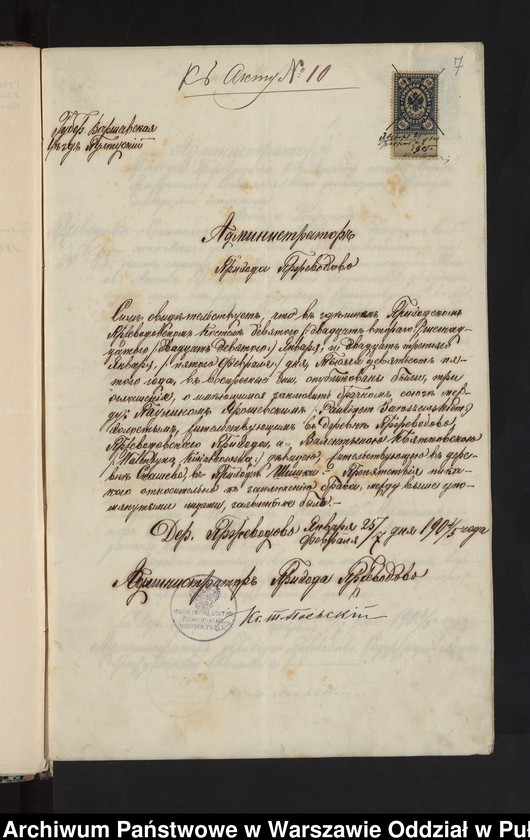 Къ Акту № 10
7
Губер. Варшавская
Уѣздъ Пултускій
Администраторъ
Прихода Пржеводово
Симъ свидѣтельствуетъ, что въ здѣшнемъ Приходскомъ
Пржеводовскомъ костелѣ девятого / двадцать второго / шестнад-
цатого / двадцать девятого / Января, и двадцать третьяго
Января, / пятого Февраля / дня, тысяча девятьсотъ пя-
того года, въ воскресные дни, опубликованы были, три
оглашенія, о имѣющемъ заключить брачномъ союзѣ меж-
ду: Паулиномъ Ярошевскимъ / Paulinem Jaroszewskim /
холостымъ, жительствующимъ въ деревнѣ Пржеводово
Пржеводовскаго Прихода, а Валентиною Квятковскою
дѣвицею, жительствующею въ дерев-
нѣ Сташево, въ Приходѣ Препятствія ника-
кого относительно къ заключенію брака, между выше упо-
мянутыми лицами, не было.
Дер. Пржеводово Января 25/7 дня 1904/5 года
Февраля
Администраторъ Прихода Пржеводово
Archiwum Państwowe w Warszawie Oddział w Puł